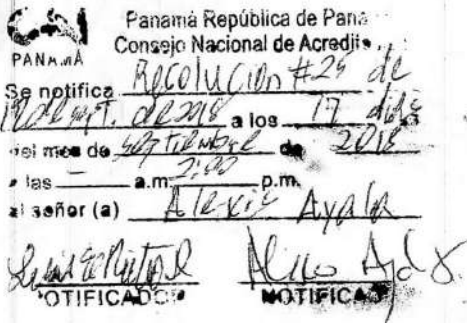 Panamá República de Pana
Consejo Nacional de Acredita
PANAMÁ
Se notifica Resolución #25 de
12 de sept. de 2018 a los 17 días
del mes de septiembre de 2018
a las a.m. 2:00 p.m.
al señor (a) Alexis Ayala
NOTIFICADOR NOTIFICADO